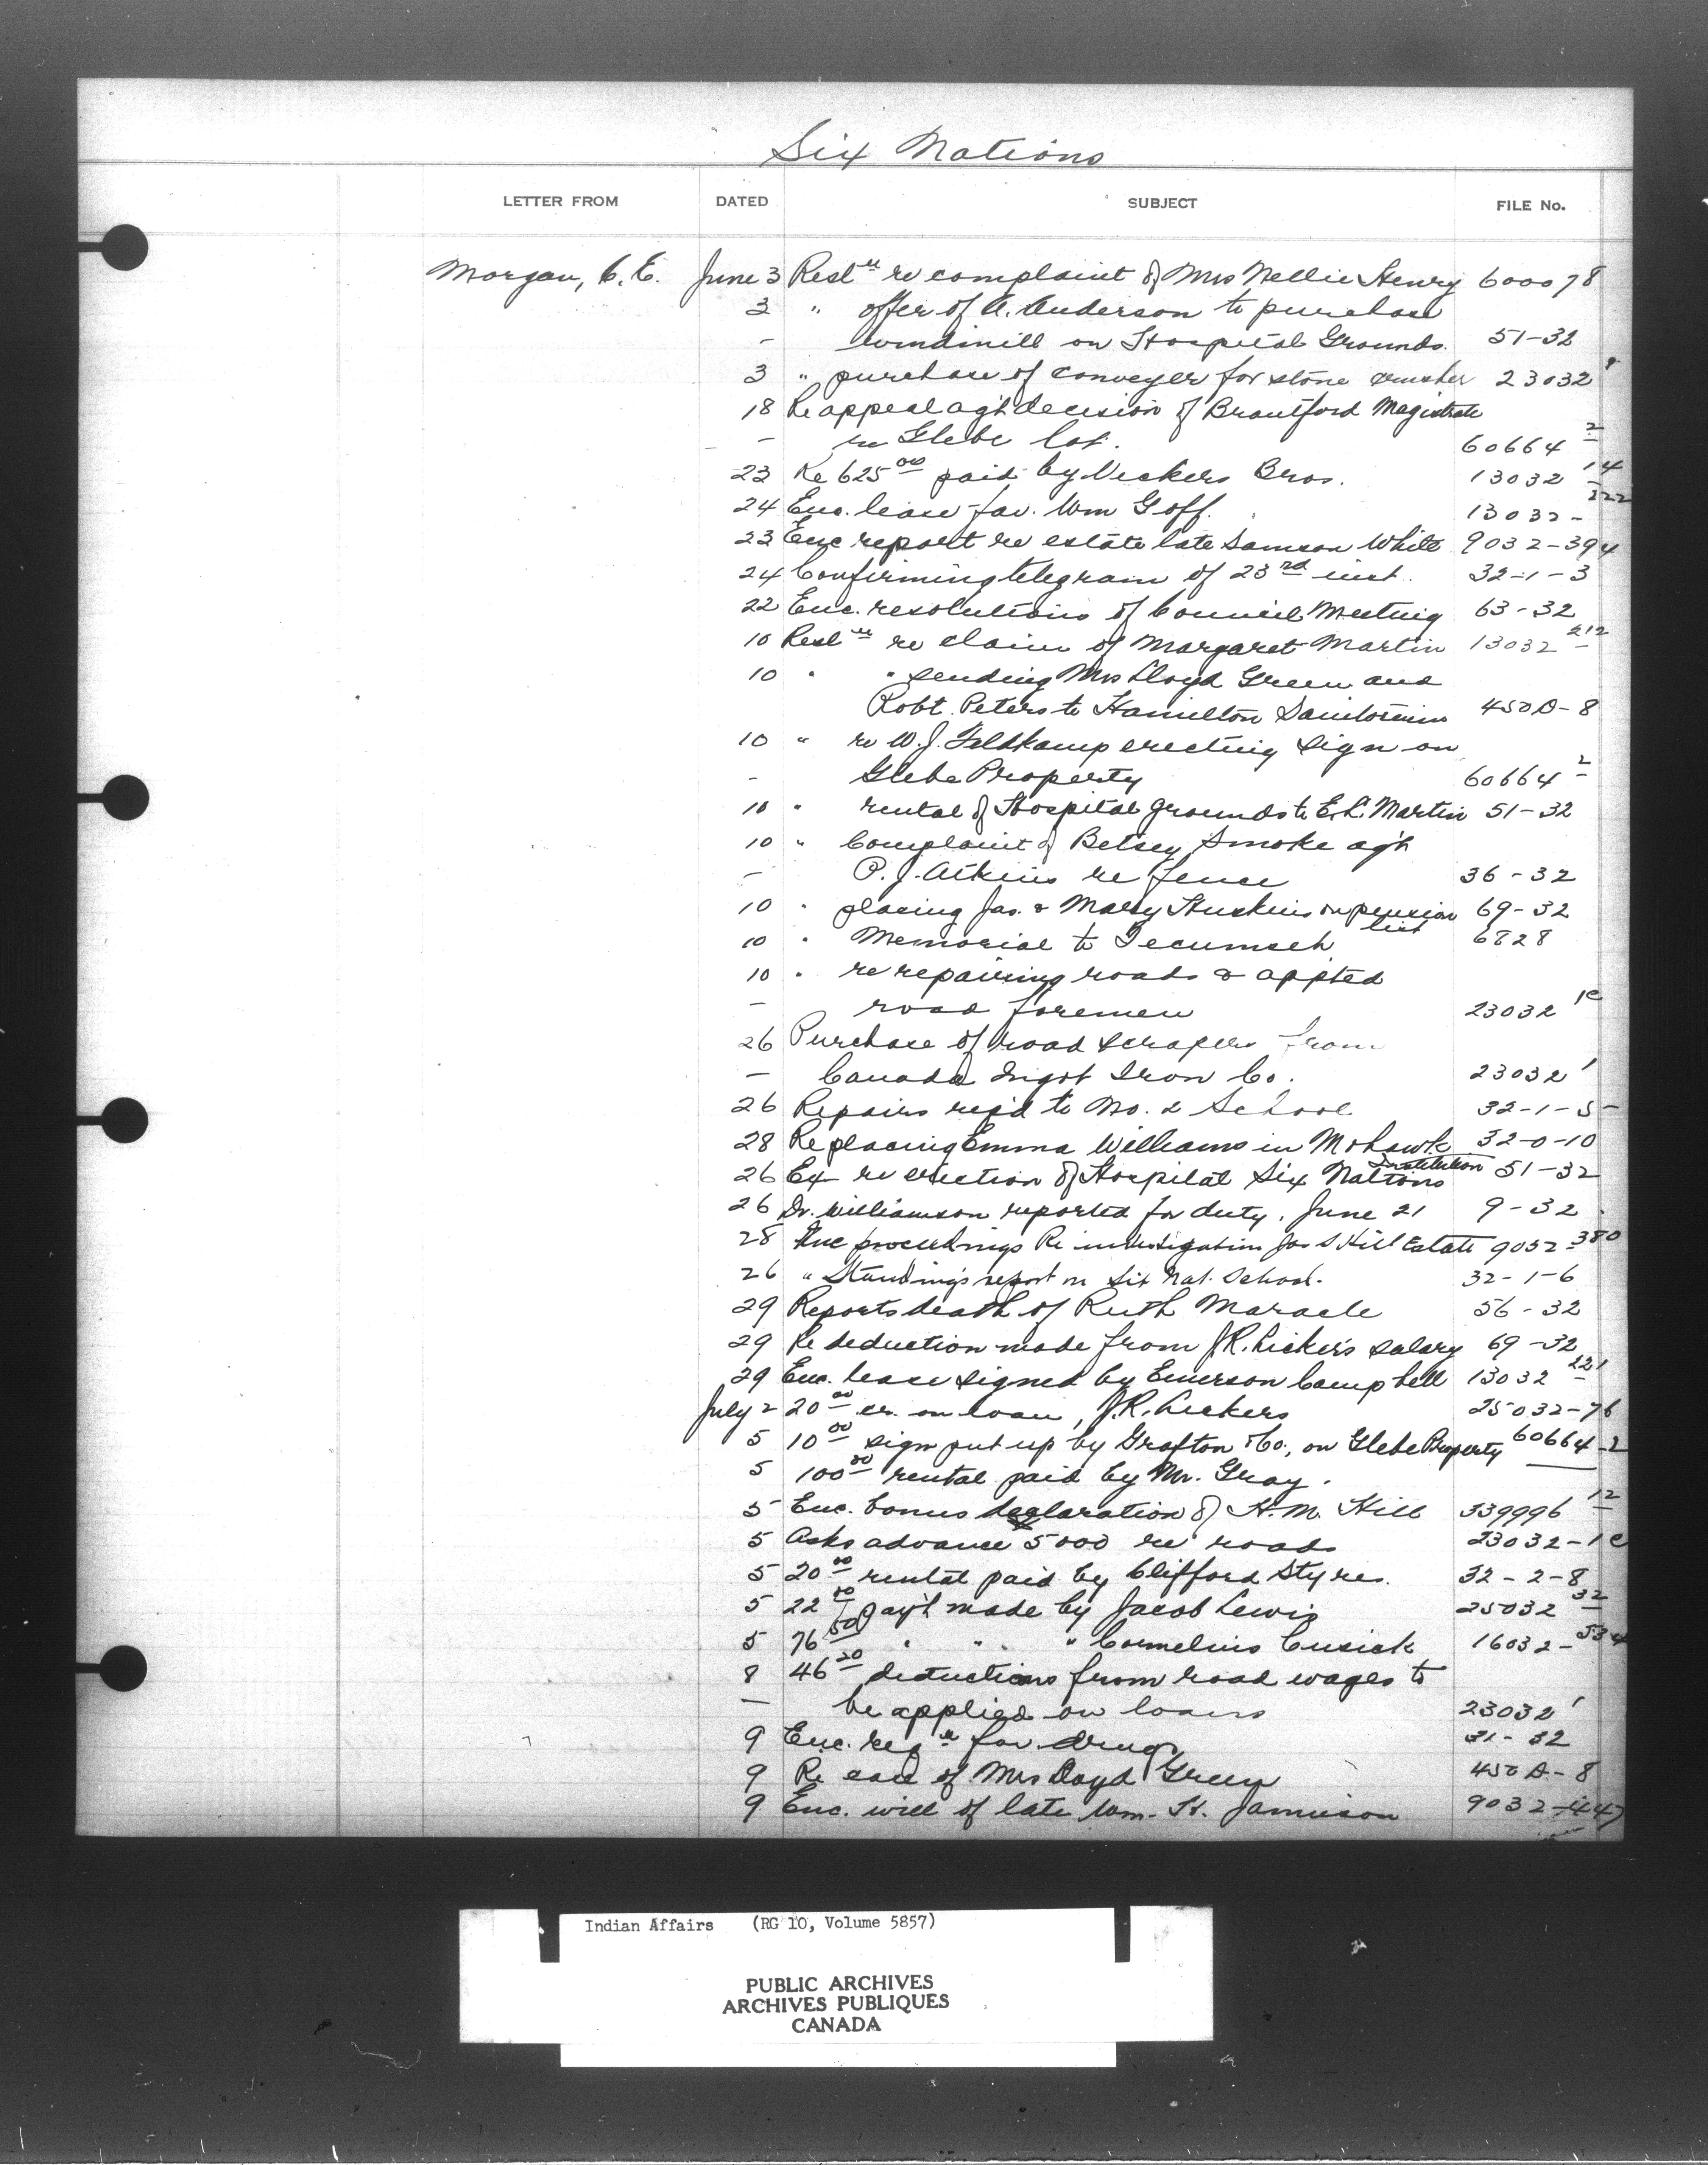 Six Nations
LETTER FROM DATED SUBJECT FILE No.
Morgan, C. E. June 3 Resl re complaint of Mrs Nellie Henry 600078
3 " offer of A. Anderson to purchase
- windmill on Hospital Grounds. 51-32
3 " purchase of conveyer for stone crusher 23032
18 Re appeal agt decision of Brantford Magistrate
- re Glebe lot. 60664 2
23 Re 625 00 paid by Vickers Bros. 13032 14
24 Enc. lease fav. Wm Goff. 13032 - 222
23 Enc report re estate late Samson White 9032-394
24 Confirming telegram of 23rd inst. 32-1-3
22 Enc. resolutions of Council Meeting 63-32
10 Resl re claim of Margaret Martin 13032 212
10 " " sending Mrs Lloyd Green and
Robt. Peters to Hamilton Sanitorium 450A-8
10 " re W. J. Feldkamp erecting sign on
- Glebe Property 60664 2
10 " rental of Hospital grounds to E. C. Martin 51-32
10 " Complaint of Betsey Smoke agt
- P. J. Atkins re fence 36-32
10 " placing Jas. & Mary Huskins on pension list 69-32
10 " Memorial to Tecumseh 6828
10 " re repairing roads & appted
- road foremen 23032 1c
26 Purchase of road scrapers from
- Canada Ingot Iron Co. 23032 1
26 Repairs reqd to No. 2 School 32-1-5-
28 Re placing Emma Williams in Mohawk Institution 32-0-10
26 Ex re erection of Hospital Six Nations 51-32
26 Dr. Williamson reported for duty, June 21 9-32
28 Enc proceedings Re investigation Jas S Hill Estate 9032-380
26 " Standing's report on Six Nat. School. 32-1-6
29 Reports death of Ruth Maracle 56-32
29 Re deduction made from J. R. Lickers salary 69-32
29 Enc. lease signed by Emerson Campbell 13032 221
July 2 20 00 cr. on loan, J. R. Lickers 25032-76
5 10 00 sign put up by Grafton & Co., on Glebe Property 60664-2
5 100 00 rental paid by Mr. Gray.
5 Enc. bonus declaration of H. M. Hill 339996 12
5 Asks advance 5000 re roads 23032-1c
5 20 00 rental paid by Clifford Styres. 32-2-8
5 22 50 pay't made by Jacob Lewis 25032 32
5 76 50 " " " Cornelius Cusick 16032-534
8 46 20 deductions from road wages to
- be applied on loans 23032 1
9 Enc. reqn for drugs 31-32
9 Re case of Mrs Loyd Green 450A-8
9 Enc. will of late Wm. H. Jamieson 9032-447
Indian Affairs (RG 10, Volume 5857)
PUBLIC ARCHIVES
ARCHIVES PUBLIQUES
CANADA